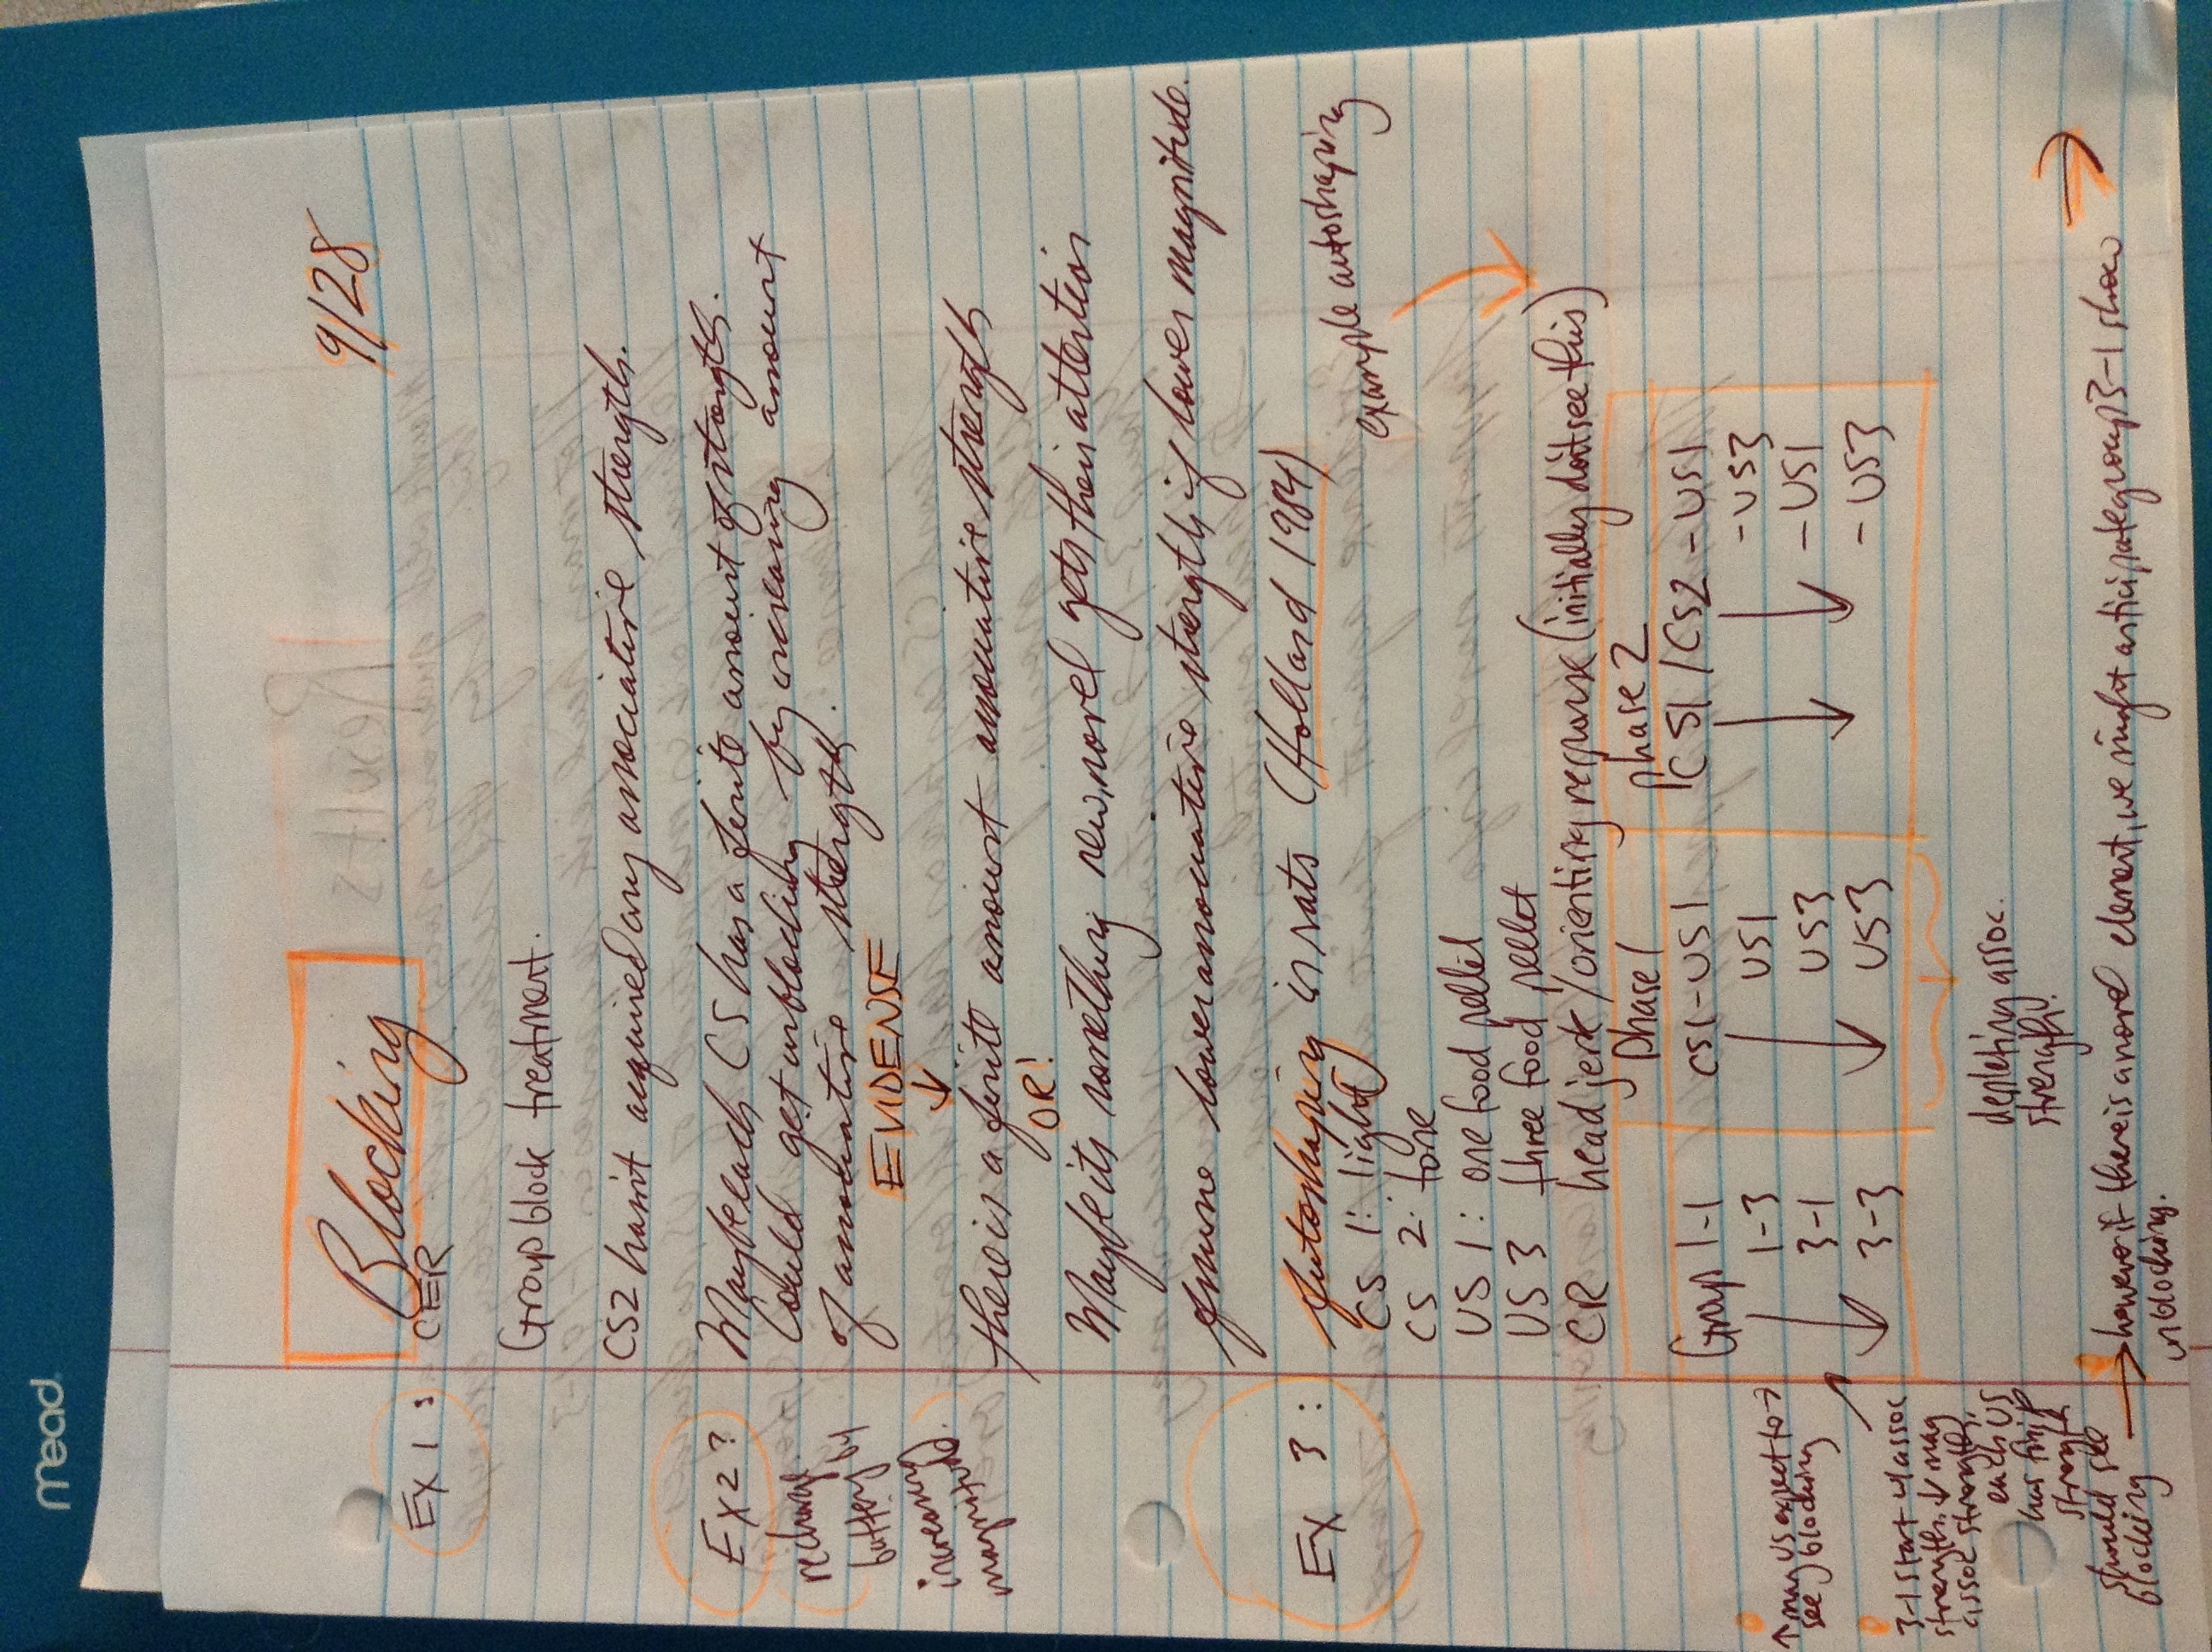 mead
9/28
Blocking
EX 1: CER
Group block treatment.
CS2 hasn't acquired any associative strength.
EX 2? Maybe each CS has a finite amount of strength.
Could get unblocking by increasing amount
of associative strength.
recharge
battery by
increasing
magnitude.
EVIDENSE
↓
there is a finite amount associative strength
OR!
Maybe its something new, novel gets their attention
Assume lower associative strength if lower magnitude.
EX 3: Autoshaping in rats (Holland 1984)
example autoshaping
CS 1: light
CS 2: tone
US 1: one food pellet
US 3 three food pellet
CR head jerk/orienting response (initially don't see this)
phase 1 phase 2
Group 1-1 CS1-US1 CS1/CS2-US1
1-3 US1 -US3
3-1 US3 -US1
3-3 US3 -US3
↑ mag US expect to →
see blocking
3-1 start w/ assoc
strength. ↓ mag
assoc strength,
each US
has finite
strength
should see
blocking
depleting assoc.
strength.
→ however if there is a novel element, we might anticipate group 3-1 show
unblocking.